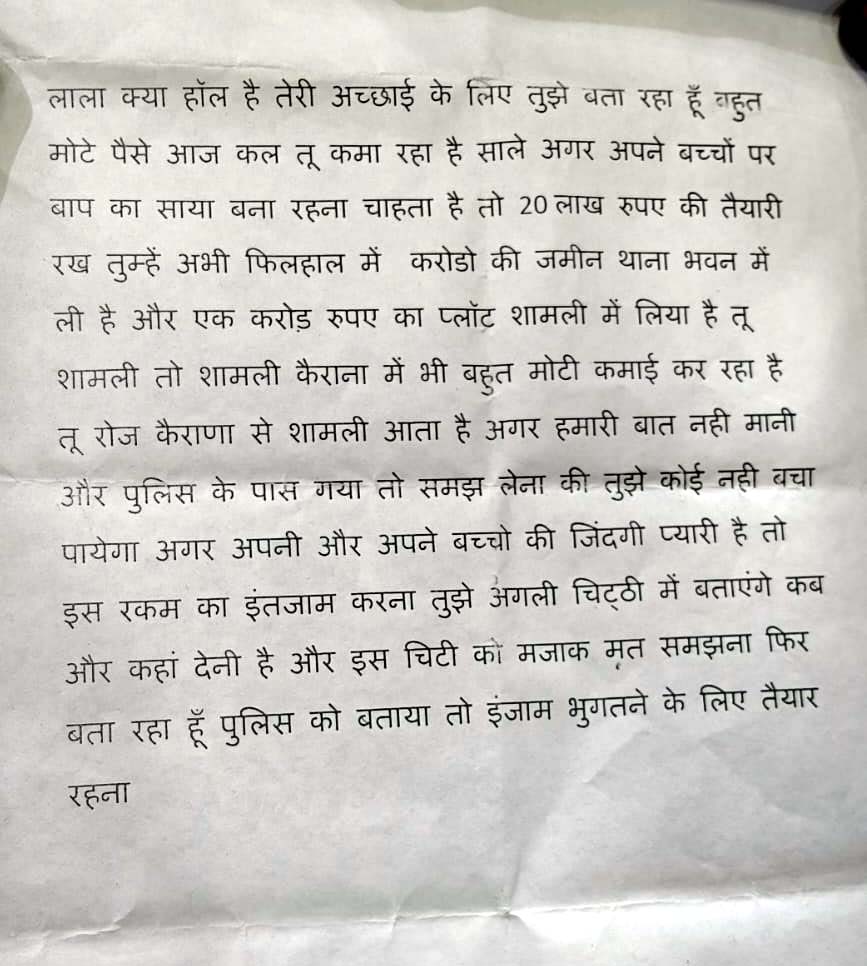 लाला क्या हॉल है तेरी अच्छाई के लिए तुझे बता रहा हूँ बहुत
मोटे पैसे आज कल तू कमा रहा है साले अगर अपने बच्चों पर
बाप का साया बना रहना चाहता है तो 20 लाख रुपए की तैयारी
रख तुम्हें अभी फिलहाल में करोडो की जमीन थाना भवन में
ली है और एक करोड़ रुपए का प्लॉट शामली में लिया है तू
शामली तो शामली कैराना में भी बहुत मोटी कमाई कर रहा है
तू रोज कैराणा से शामली आता है अगर हमारी बात नही मानी
और पुलिस के पास गया तो समझ लेना की तुझे कोई नही बचा
पायेगा अगर अपनी और अपने बच्चो की जिंदगी प्यारी है तो
इस रकम का इंतजाम करना तुझे अगली चिट्ठी में बताएंगे कब
और कहां देनी है और इस चिटी को मजाक मत समझना फिर
बता रहा हूँ पुलिस को बताया तो इंजाम भुगतने के लिए तैयार
रहना